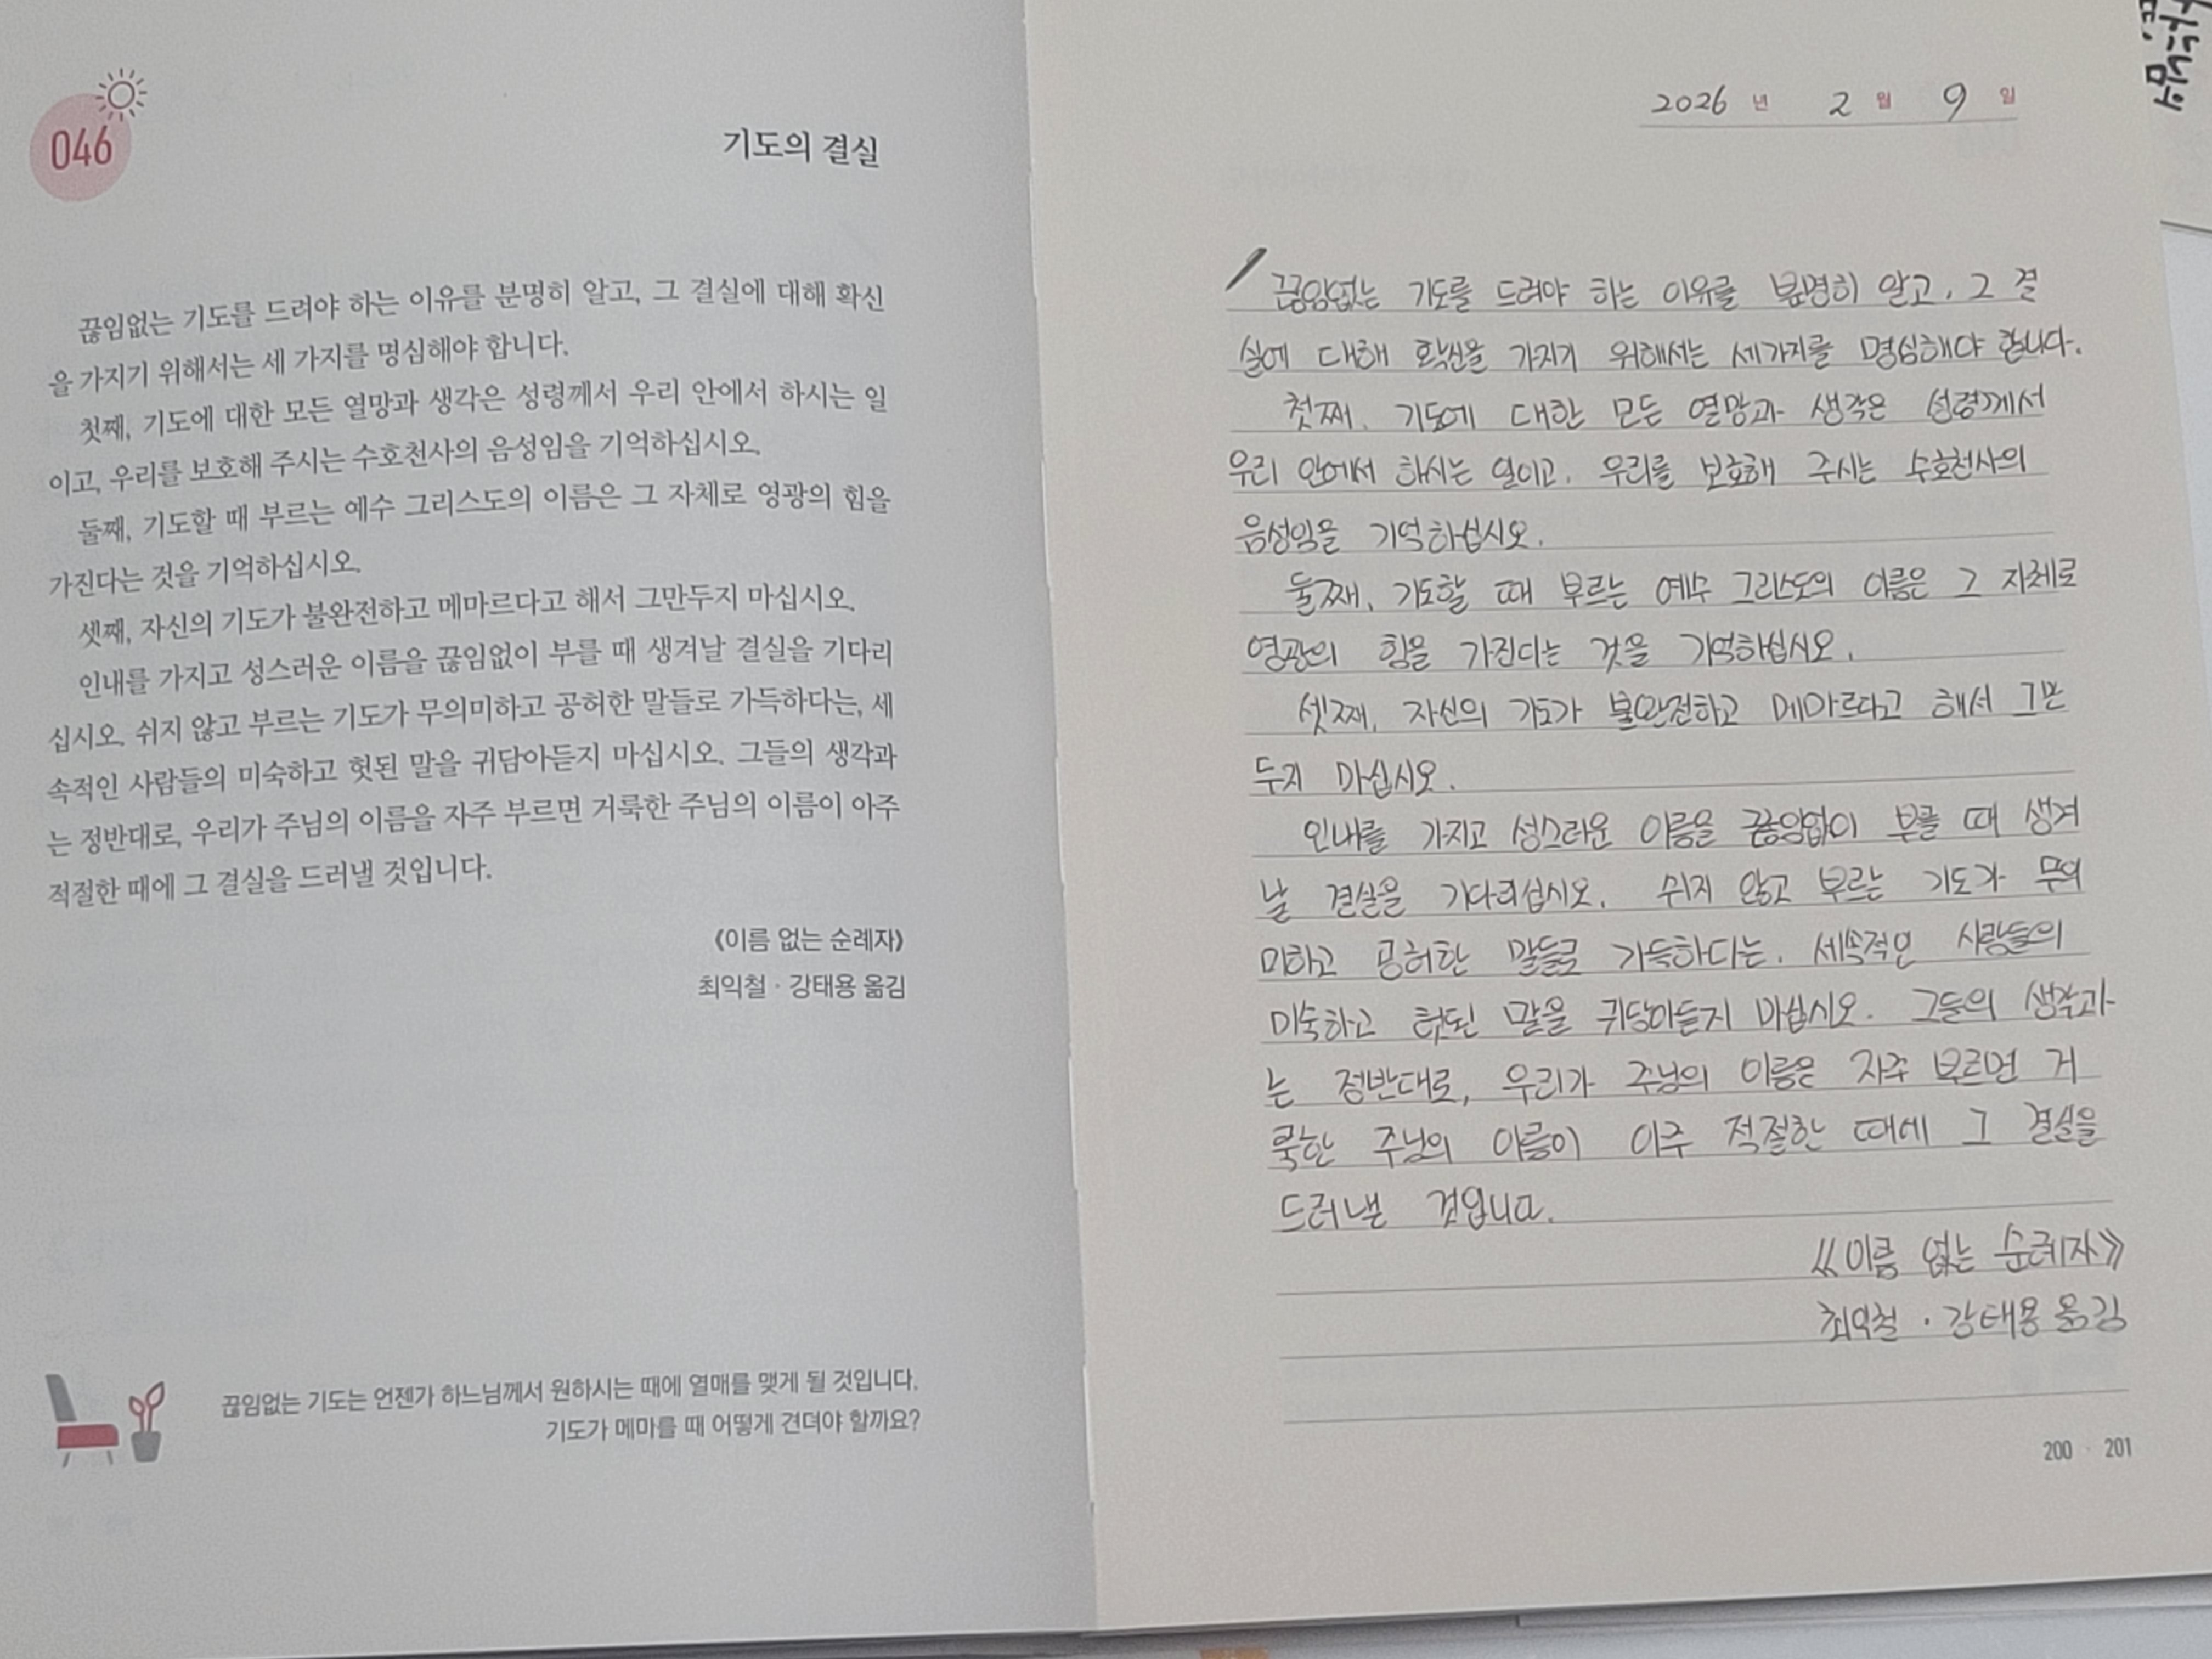 046
기도의 결실
끊임없는 기도를 드려야 하는 이유를 분명히 알고, 그 결실에 대해 확신
을 가지기 위해서는 세 가지를 명심해야 합니다.
첫째, 기도에 대한 모든 열망과 생각은 성령께서 우리 안에서 하시는 일
이고, 우리를 보호해 주시는 수호천사의 음성임을 기억하십시오.
둘째, 기도할 때 부르는 예수 그리스도의 이름은 그 자체로 영광의 힘을
가진다는 것을 기억하십시오.
셋째, 자신의 기도가 불완전하고 메마르다고 해서 그만두지 마십시오.
인내를 가지고 성스러운 이름을 끊임없이 부를 때 생겨날 결실을 기다리
십시오. 쉬지 않고 부르는 기도가 무의미하고 공허한 말들로 가득하다는, 세
속적인 사람들의 미숙하고 헛된 말을 귀담아듣지 마십시오. 그들의 생각과
는 정반대로, 우리가 주님의 이름을 자주 부르면 거룩한 주님의 이름이 아주
적절한 때에 그 결실을 드러낼 것입니다.
《이름 없는 순례자》
최익철 · 강태용 옮김
끊임없는 기도는 언젠가 하느님께서 원하시는 때에 열매를 맺게 될 것입니다.
기도가 메마를 때 어떻게 견뎌야 할까요?
2026 년 2 월 9 일
끊임없는 기도를 드려야 하는 이유를 분명히 알고, 그 결
실에 대해 확신을 가지기 위해서는 세가지를 명심해야 합니다.
첫째, 기도에 대한 모든 열망과 생각은 성령께서
우리 안에서 하시는 일이고, 우리를 보호해 주시는 수호천사의
음성임을 기억하십시오.
둘째, 기도할 때 부르는 예수 그리스도의 이름은 그 자체로
영광의 힘을 가진다는 것을 기억하십시오.
셋째, 자신의 기도가 불완전하고 메마르다고 해서 그만
두지 마십시오.
인내를 가지고 성스러운 이름을 끊임없이 부를 때 생겨
날 결실을 기다리십시오. 쉬지 않고 부르는 기도가 무의
미하고 공허한 말들로 가득하다는, 세속적인 사람들의
미숙하고 헛된 말을 귀담아듣지 마십시오. 그들의 생각과
는 정반대로, 우리가 주님의 이름을 자주 부르면 거
룩한 주님의 이름이 아주 적절한 때에 그 결실을
드러낼 것입니다.
《이름 없는 순례자》
최익철 · 강태용 옮김
200 · 201